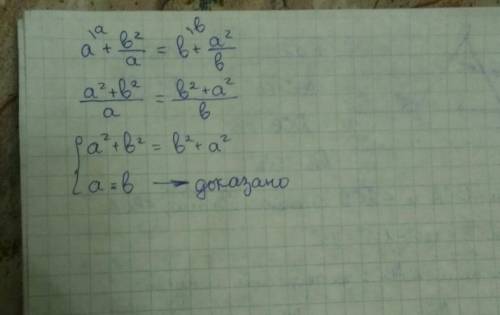 a\ᵃ + b²/a = b\ᵇ + a²/b
(a² + b²)/a = (b² + a²)/b
{ a² + b² = b² + a²
a = b → доказано